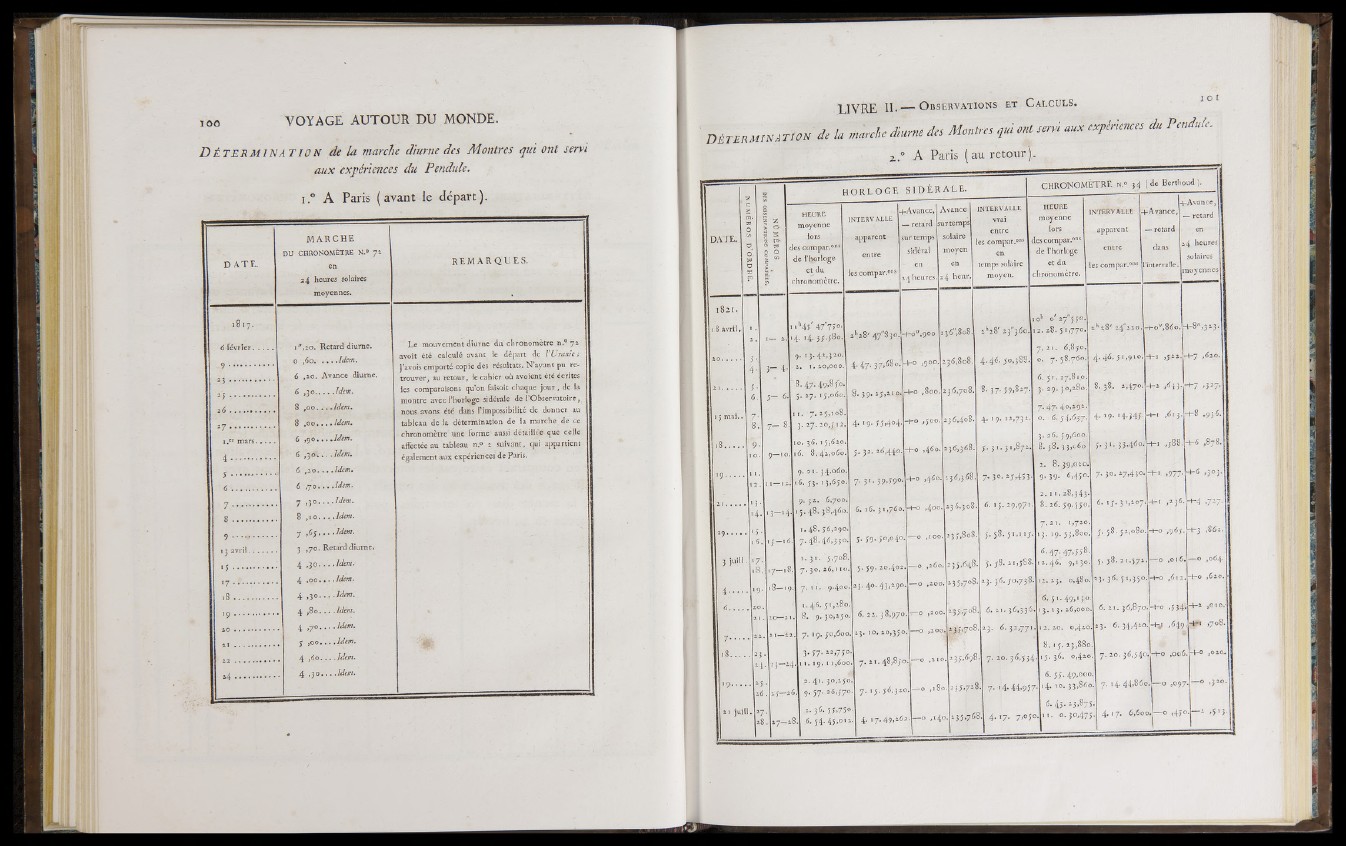 100 VOYAGE AUTOUR DU MONDE.
DÉTERMINATION de la marche diurne des Montres qui ont servi
aux expériences du Pendule.
1.° A Paris (avant le départ).
DATE.
MARCHE
DU CHRONOMÈTRE N.° 72
en
24 heures solaires
moyennes.
REMARQUES.
1817.
6 février..... 1",20. Retard diurne.
9 .......... 0 ,60. ....Idem.
23 .......... 6 ,20. Avance diurne.
25 .......... 6 ,30.....Idem.
26 .......... 8 ,00....Idem.
27 .......... 8 ,00....Idem.
1.er mars..... 6 ,90....Idem.
4 .......... 6 ,30....Idem.
5 .......... 6 ,20....Idem.
6 .......... 6 ,70....Idem.
7 .......... 7 ,30....Idem.
8 .......... 8 ,10....Idem.
9 .......... 7 ,65....Idem.
13 avril....... 3 ,70. Retard diurne.
15 .......... 4 ,30....Idem.
17 .......... 4 ,00....Idem.
18 .......... 4 ,30....Idem.
19 .......... 4 ,80....Idem.
20 .......... 4 ,70....Idem.
21 .......... 5 ,00....Idem.
22 .......... 4 ,60....Idem.
24 .......... 4 ,30....Idem.
Le mouvement diurne du chronomètre n.° 72
avoit été calculé avant le départ de l'Uranie;
j'avois emporté copie des résultats. N'ayant pu re-
trouver, au retour, le cahier où avoient été écrites
les comparaisons qu'on faisoit chaque jour, de la
montre avec l'horloge sidérale de l'Observatoire,
nous avons été dans l'impossibilité de donner au
tableau de la détermination de la marche de ce
chronomètre une forme aussi détaillée que celle
affectée au tableau n.° 2 suivant, qui appartient
également aux expériences de Paris.
LIVRE II. — OBSERVATIONS ET CALCULS. 101
DÉTERMINATION de la marche diurne des Montres qui ont servi aux expériences du Pendule.
2.° A Paris (au retour).
DATE.
NUMÉROS D'ORDRE.
NUMÉROS
DES OBSERVATIONS COMPARÉES.
HORLOGE SIDÉRALE.
HEURE
moyenne
lors
des compar.ons
de l'horloge
et du
chronomètre.
INTERVALLE
apparent
entre
les compar.ons
+Avance,
— retard
sur temps
sidéral
en
24 heures.
Avance
sur temps
solaire
moyen
en
24 heur.
INTERVALLE
vrai
entre
les compar.ons
en
temps solaire
moyen.
CHRONOMÈTRE N.° 34 (de Berthoud).
HEURE
moyenne
lors
des compar.ons
de l'horloge
et du
chronomètre.
INTERVALLE
apparent
entre
les compar.ons
+Avance,
— retard
dans
l'intervalle.
+Avance,
— retard
en
24 heures
solaires
moyennes
1821.
18 avril. 1. 11h45' 47"750. 10h 0' 27"550.
2. 1— 2. 14. 14. 35,580. 2h28' 47"830. +0",900 236",808. 2h28' 23"360. 12. 28. 51,770. 2h28' 24"220. +0",860. +8",323.
20..... 3. 9. 13. 42,320. 7. 21. 6,850.
4. 3— 4. 2. 1. 20,000. 4. 47. 37,680. +0 ,900. 236,808. 4. 46. 50,388. 0. 7. 58,760. 4. 46. 51,910. +1 ,522. +7 ,620.
21..... 5. 8. 47. 49,850. 6. 51. 27,810.
6. 5— 6. 5. 27. 15,060. 8. 39. 25,210. +0 ,800. 236,708. 8. 37. 59,827. 3. 29. 30,280. 8. 38. 2,470. +2 ,643. +7 ,327.
15 mai.. 7. 11. 7. 25,108. 7. 47. 40,292.
8. 7— 8. 3. 27. 20,512. 4. 19. 55,404. +0 ,500. 236,408. 4. 19. 12,731. 0. 6. 54,657. 4. 19. 14,345. +1 ,613. +8 ,936.
18..... 9. 10. 36. 15,620. 3. 26. 59,600.
10. 9—10. 16. 8. 42,060. 5. 32. 26,440. +0 ,460. 236,368. 5. 31. 31,872. 8. 58. 33,060. 5. 31. 33,460. +1 ,588. +6 ,878.
19..... 11. 9. 21. 34,060. 2. 8. 39,020.
12. 11—12. 16. 53. 13,650. 7. 31. 39,590. +0 ,460. 236,368. 7. 30. 25,453. 9. 39. 6,450. 7. 30. 27,430. +1 ,977. +6 ,303.
21..... 13. 9. 32. 6,700. 2. 11. 28,343.
14. 13—14. 15. 48. 38,460. 6. 16. 31,760. +0 ,400. 236,308. 6. 15. 29,971. 8. 26. 59,550. 6. 15. 31,207. +1 ,236. +4 ,727.
29..... 15. 1. 48. 56,290. 7. 21. 1,720.
16. 15—16. 7. 48. 46,330. 5. 59. 50,040. —0 ,100. 235,808. 5. 58. 51,115. 13. 19. 53,800. 5. 58. 52,080. +0 ,965. +3 ,862.
3 juill 17. 1. 31. 5,708. 6. 47. 47,558.
18. 17—18. 7. 30. 26,110. 5. 59. 20,402. —0 ,260. 235,648. 5. 58. 21,588. 12. 46. 9,130. 5. 38. 21,572. —0 ,016. —0 ,064.
4..... 19. 18—19. 7. 11. 9,400. 23. 40. 43,290. —0 ,200. 235,708. 23. 36. 50,738. 12. 23. 0,480. 23. 36. 51,350. +0 ,612. +0 ,620.
6..... 20. 1. 46. 51,280. 6. 51. 49,130.
21. 20—21. 8. 9. 30,250. 6. 22. 38,970. —0 ,200. 235,708. 6. 21. 36,336. 13. 13. 26,000. 6. 21. 36,870. +0 ,534. +2 ,010.
7..... 22. 21—22. 7. 19. 50,600. 23. 10. 20,350. —0 ,200. 235,708. 23. 6. 32,771. 12. 20. 0,420. 23. 6. 34,420. +1 ,649. +1 ,708.
18..... 23. 3. 57. 22,750. 8. 15. 23,880.
24. 23—24. 11. 19. 11,600. 7. 21. 48,850. —0 ,210. 235,698. 7. 20. 36,534. 15. 36. 0,420. 7. 20. 36,540. +0 ,006. +0 ,020.
19..... 25. 2. 41. 30,250. 6. 55. 49,000.
26. 25—26. 9. 57. 26,570. 7. 15. 56,320. —0 ,180. 235,728. 7. 14. 44,957. 14. 10. 33,860. 7. 14. 44,860. —0 ,097. —0 ,320.
21 juill. 27. 2. 36. 55,750. 6. 43. 23,875.
28. 27—28. 6. 54. 45,012. 4. 17. 49,262. —0 ,140. 235,768. 4. 17. 7,050. 11. 0. 30,475. 4. 17. 6,600. —0 ,450. —2 ,513.